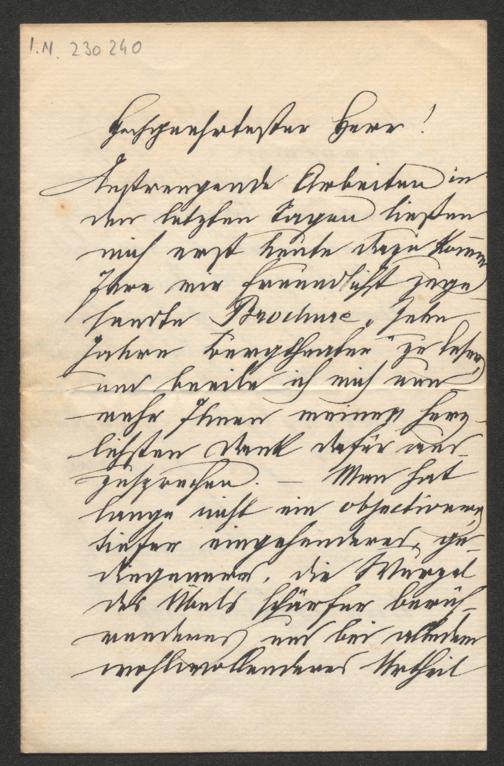 I.N. 230240
Hochgeehrtester Herr!
Anstrengende Arbeiten in
den letzten Tagen ließen
mich erst heute dazu komen
Ihre mir freundlichst zuge
sandte Brochure „Zehn
Jahre Burgtheater" zu lesen,
und beeile ich mich nun
mehr Ihnen meinen herz-
lichsten Dank dafür aus
zusprechen. — Man hat
lange nicht ein objectiveres,
tiefer eingehenderes, ge-
diegeneres, die Wurzel
des Übels schärfer berüh-
renderes und bei alledem
wohlwollenderes Urtheil